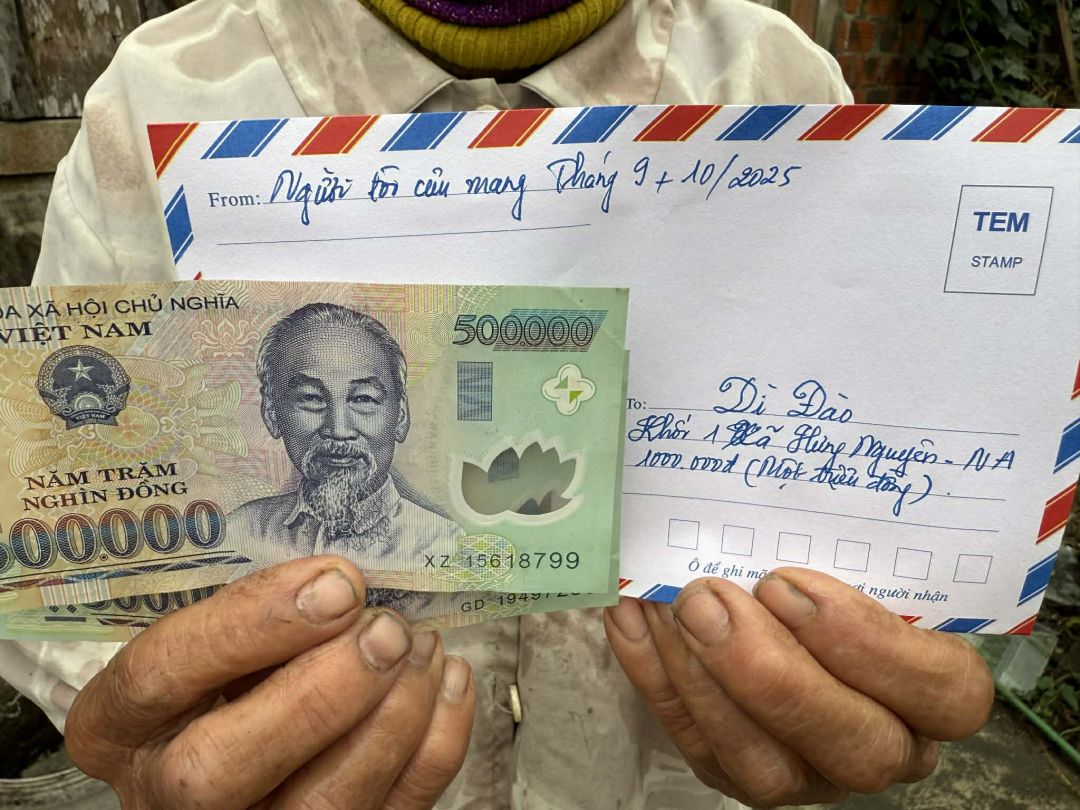 From: Người tôi cưu mang Tháng 9 + 10/2025
TEM
STAMP
XÃ HỘI CHỦ NGHĨA
VIỆT NAM
500.000
VIỆT NAM
NĂM TRĂM
NGHÌN ĐỒNG
00.000
XZ 15618799
GD
To: Dì Đào
Khối 1 Xã Hưng Nguyên - NA
1000.000đ (Một triệu đồng).
Ô để ghi
người nhận